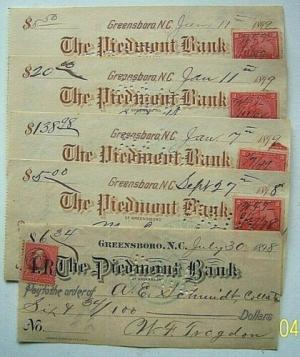 $5.50 Greensboro, N.C. Jan 11th 1899
The Piedmont Bank
$20.00 Greensboro, N.C. Jan 11th 1899
The Piedmont Bank
$138.98 Greensboro, N.C. Jan 7th 1899
The Piedmont Bank
$5.00 Greensboro, N.C. Sept 27th 1898
The Piedmont Bank
OF GREENSBORO
GREENSBORO, N.C. July 30 1898
The Piedmont Bank
Pay to the order of A. E. Schmidt
34/100 Dollars
No. W. F. Trogdon
04